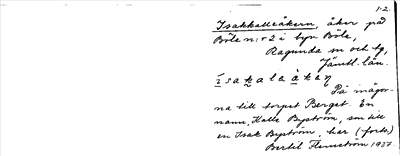 1-2.
Isakkalleåkern, åker på
Böle n:r 2 i byn Böle,
Ragunda sn och tg,
Jämtl. län.
ı̇̀sakalaàkeṇ
På mågor-
na till torpet Berget. En
namn. Kalle Byström, son till
en Isak Byström, har (forts.)
Bertil Flemström 1937.